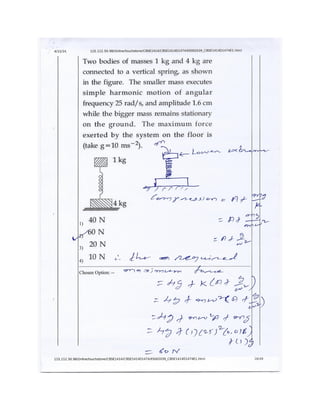 4/10/14
103.152.39.98/OnlineTouchstone/CBSE1414/CBSE1414D14745065034_CBSE1414D147401.html
Two bodies of masses 1 kg and 4 kg are
connected to a vertical spring, as shown
in the figure. The smaller mass executes
simple harmonic motion of angular
frequency 25 rad/s, and amplitude 1.6 cm
while the bigger mass remains stationary
on the ground. The maximum force
exerted by the system on the floor is
(take g=10 ms⁻²).
1 kg
Lower extreme
4 kg
Compression = A + mg/K
1) 40 N
= A + mg/mω²
2) 60 N
= A + g/ω²
3) 20 N
4) 10 N
∴ the required
Chosen Option: --
maximum force
= 4g + K(A + g/ω²)
= 4g + mω²(A + g/ω²)
= 4g + mω²A + mg
= 4g + (1)(25)²(0.016)
+ (1)g
= 60 N